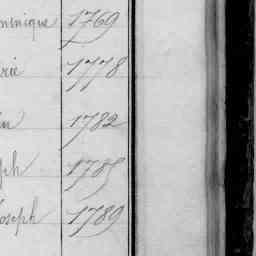 minique 1769
rie 1778
in 1782
ph 1785
Joseph 1789